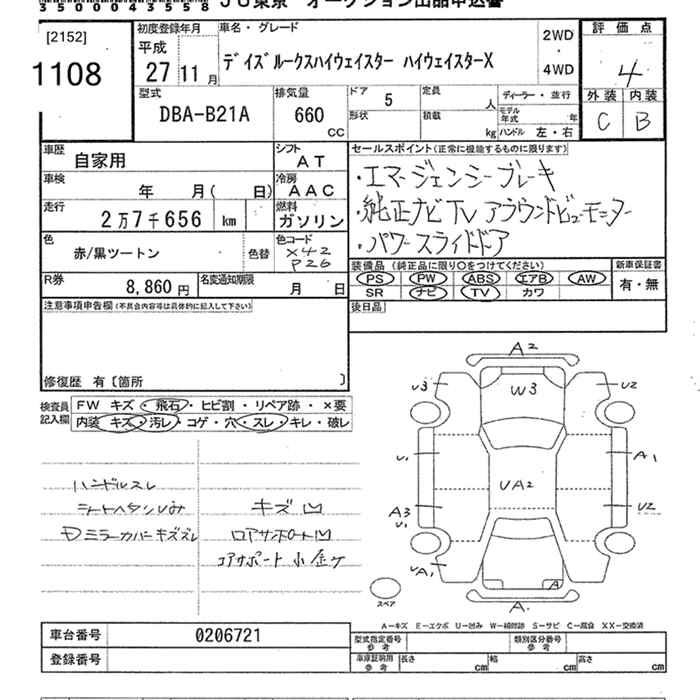 35000043558 JU東京 オークション出品申込書
[2152]
1108
初度登録年月
平成
27 11 月
車名・グレード
デイズルークスハイウェイスター ハイウェイスターX
2WD
・
4WD
評価点
4
外装 内装
C B
型式
DBA-B21A
排気量
660
CC
ドア 5
形状
定員 人
積載 kg
ディーラー・並行
モデル年式 年
ハンドル 左・右
車歴
自家用
シフト
AT
車検
年 月( 日)
冷房
AAC
走行
2万7千656 km
燃料
ガソリン
色
赤/黒ツートン
色替
色コード
X42
P26
R券
8,860円
名変通知期限
月 日
セールスポイント(正常に機能するものに限ります)
・エマージェンシーブレーキ
・純正ナビTV アラウンドビューモニター
・パワースライドドア
装備品(純正品に限り○をつけてください)
PS PW ABS エアB AW
SR ナビ TV カワ
新車保証書
有・無
後日品
注意事項申告欄(不具合内容等は具体的に記入して下さい)
修復歴 有〔箇所 〕
検査員
記入欄
FW キズ・飛石・ヒビ割・リペア跡・×要
内装 キズ・汚レ・コゲ・穴・スレ・キレ・破レ
ハンドルスレ
シートヘタンリム
キズ 凹
ミラーカバーキズスレ
ロアサポート凹
コアサポート 小金ケ
A2
U3
W3
U2
U1
A1
UA2
A3
U1
U2
UA1
A
A1
スペア
A―キズ E―エクボ U―凹み W―補修跡 S―サビ C―腐食 XX―交換済
車台番号
0206721
登録番号
型式指定番号
参考
類別区分番号
参考
車庫証明用
参考
長さ cm
幅 cm
高さ cm